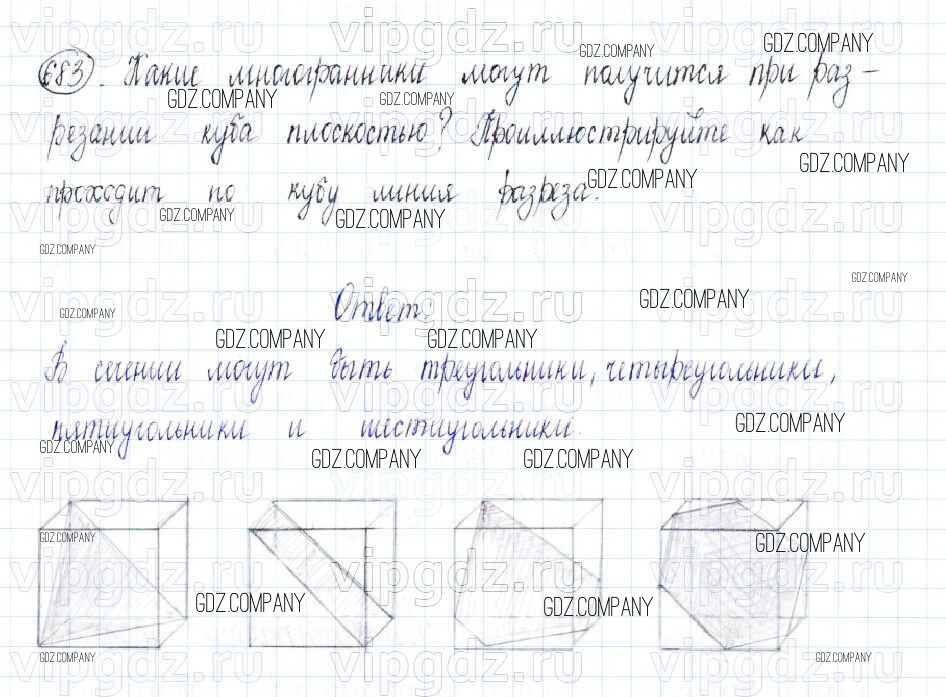 683. Какие многогранники могут получится при раз-
резании куба плоскостью? Проиллюстрируйте как
проходит по кубу линия разреза.
Ответ:
В сечении могут быть треугольники, четырёхугольники,
пятиугольники и шестиугольники.
vipgdz.ru
GDZ.COMPANY